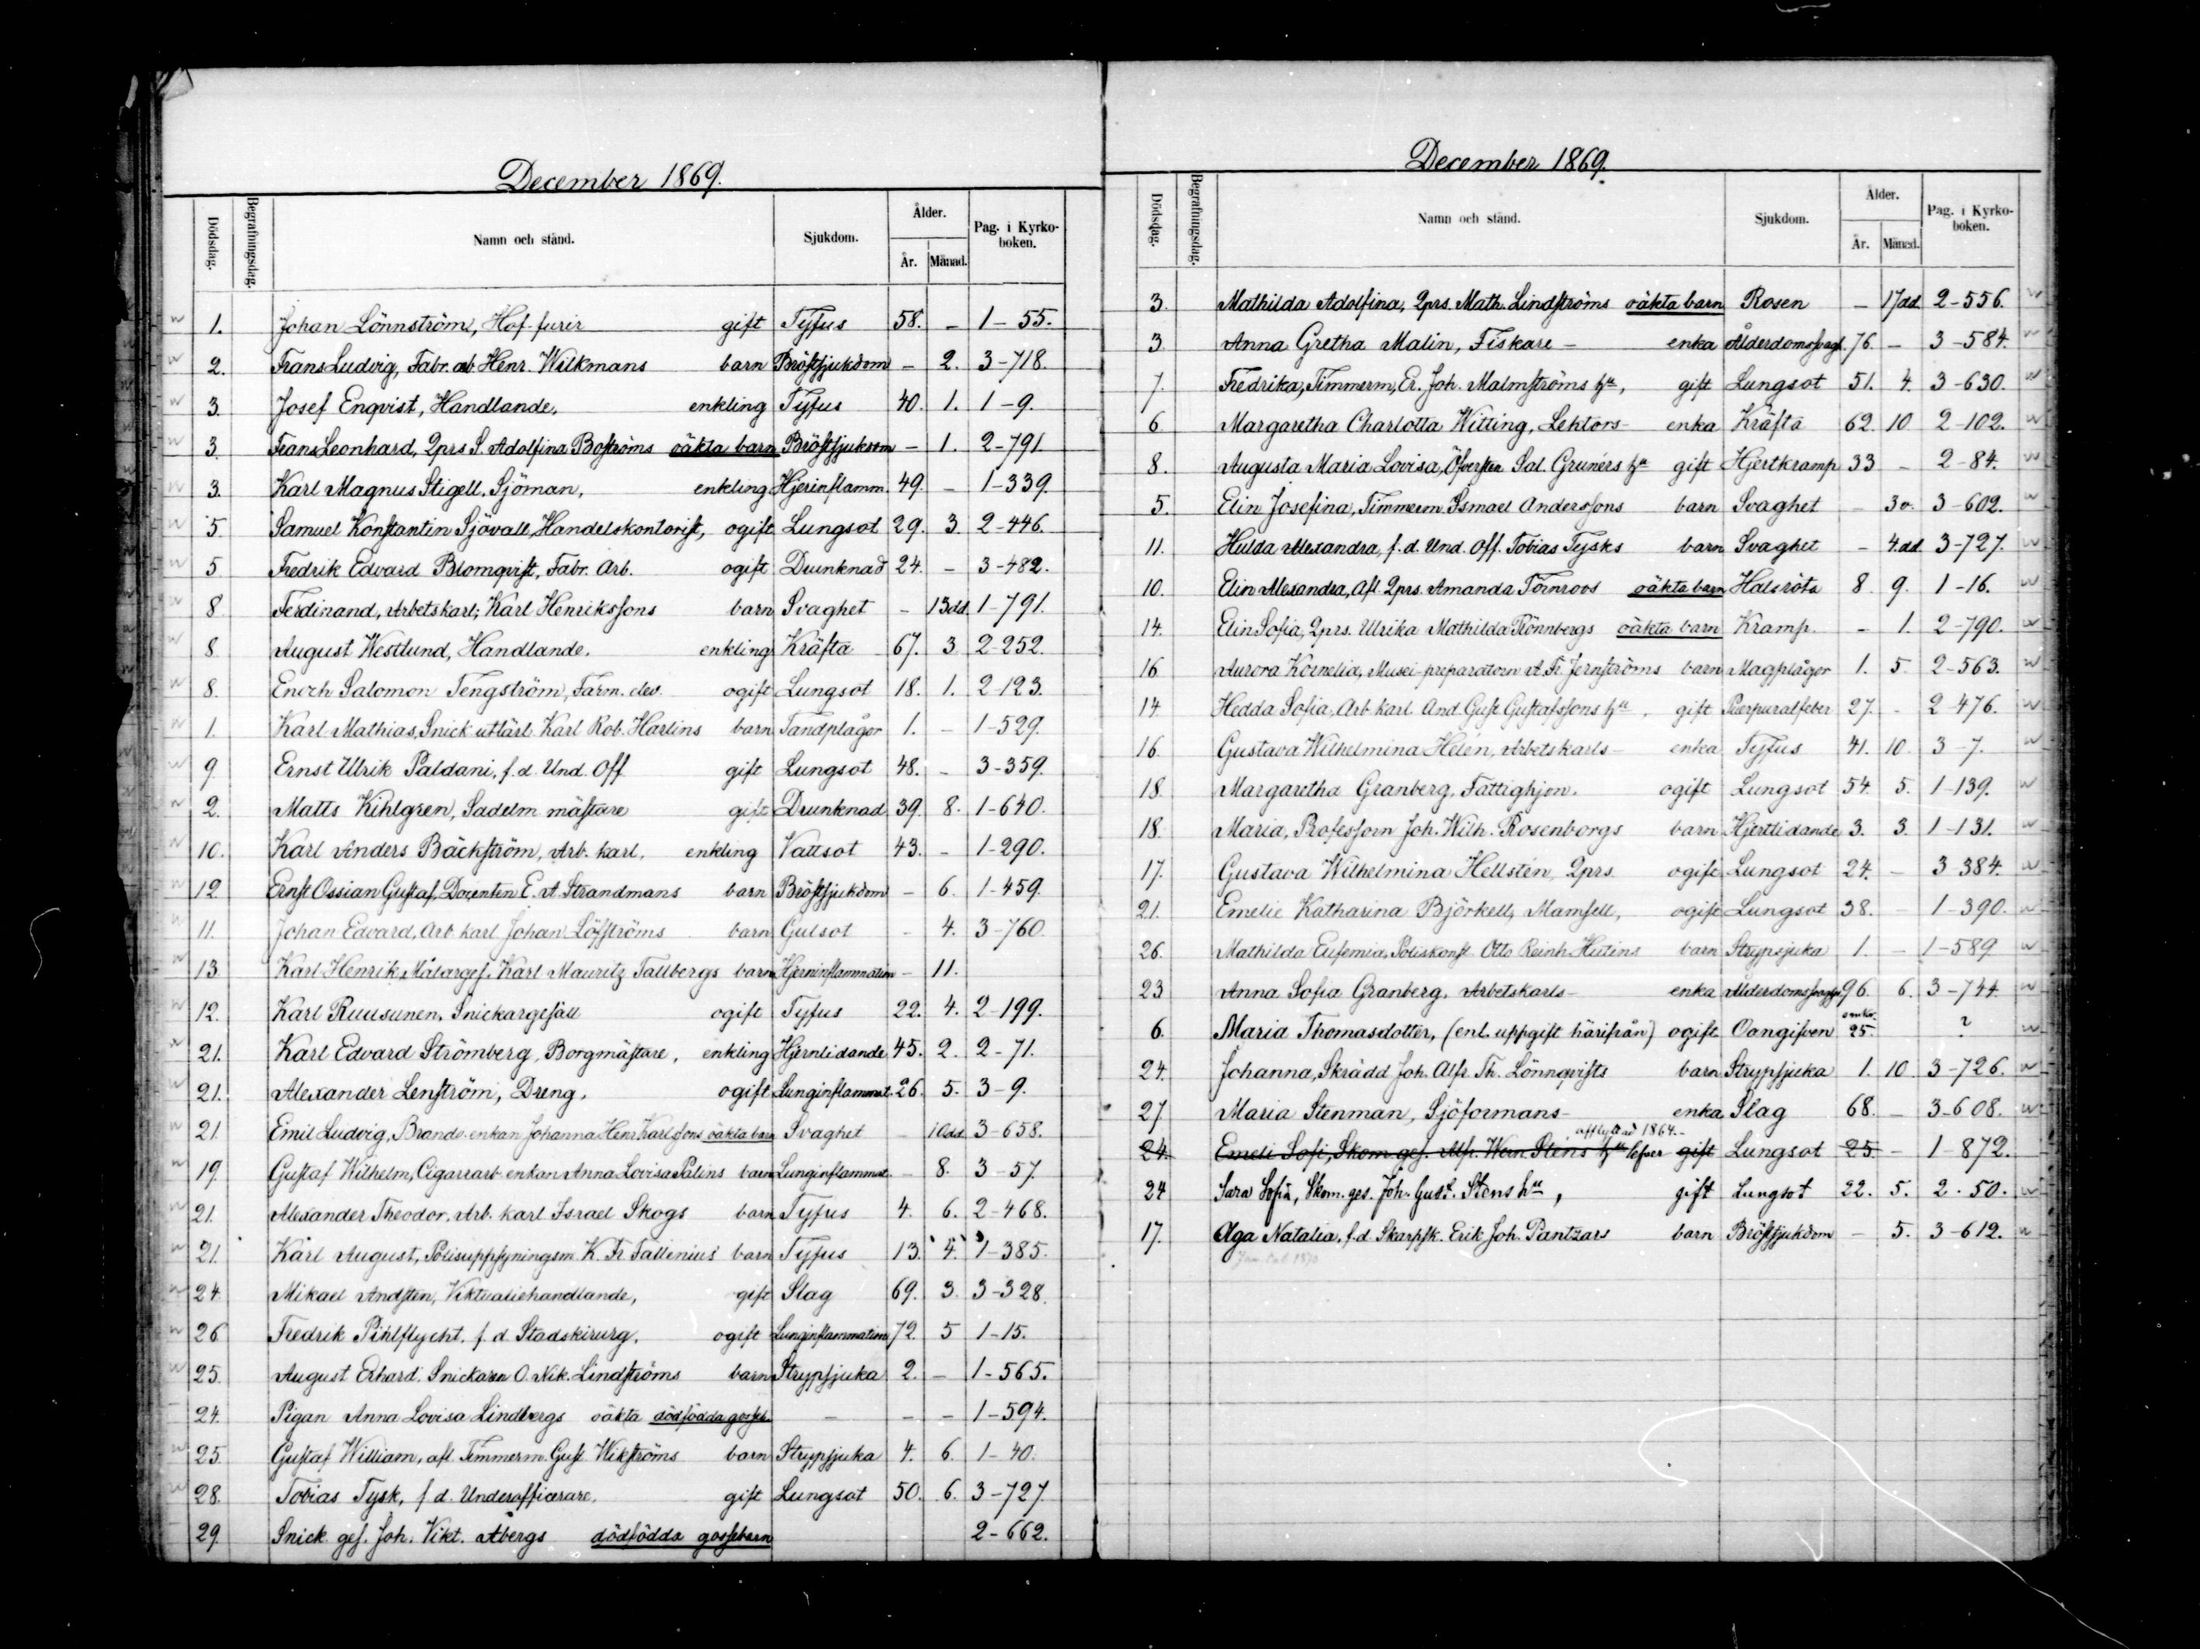 December 1869.
Dödsdag. Begrafningsdag. Namn och stånd. Sjukdom. Ålder. År. Månad. Pag. i Kyrko-boken.
1. Johan Lönnström, Hof-furir gift Tyfus 58. – 1–55.
2. Frans Ludvig, Fabr. arb. Henr. Wilkmans barn Bröstsjukdom – 2. 3–718.
3. Josef Enqvist, Handlande, enkling Tyfus 40. 1. 1–9.
3. Frans Leonhard, Qprs S. Adolfina Boströms oäkta barn Bröstsjukdom – 1. 2–791.
3. Karl Magnus Stigell, Sjöman, enkling Hjerinflamm. 49. – 1–339.
5. Samuel Konstantin Sjövall, Handelskontorist, ogift Lungsot 29. 3. 2–446.
5. Fredrik Edvard Blomqvist, Fabr. Arb. ogift Drunknad 24. – 3–482.
8. Ferdinand, Arbetskarl; Karl Henrikssons barn Svaghet – 13dd. 1–791.
8. August Westlund, Handlande. enkling Kräfta 67. 3 2–252.
8. Enoch Salomon Tengström, Farm. elev. ogift Lungsot 18. 1. 2–123.
1. Karl Mathias, Snick. utlärl. Karl Rob. Harlins barn Tandplågor 1. – 1–529.
9. Ernst Ulrik Paldani, f.d. Und. Off gift Lungsot 48. – 3–359.
2. Matts Kihlgren, Sadelm. mästare gift Drunknad 39. 8. 1–640.
10. Karl Anders Bäckström, Arb. karl, enkling Vattsot 43. – 1–290.
12. Ernst Ossian Gustaf, Docenten E. A. Strandmans barn Bröstsjukdom – 6. 1–459.
11. Johan Edvard, Arb. karl Johan Löfströms barn Gulsot – 4. 3–760.
13. Karl Henrik, Målargef. Karl Mauritz Tallbergs barn Hjerninflammation – 11.
12. Karl Ruusunen, Snickargesäll ogift Tyfus 22. 4. 2–199.
21. Karl Edvard Strömberg, Borgmästare, enkling Hjernlidande 45. 2. 2–71.
21. Alexander Lenström, Dreng, ogift Lunginflammat. 26. 5. 3–9.
21. Emil Ludvig, Brandv. enkan Johanna Henr. Karlssons oäkta barn Svaghet – 10dd. 3–658.
19. Gustaf Wilhelm, Cigarrarb. enkan Anna Lovisa Palins barn Lunginflammat. – 8. 3–57.
21. Alexander Theodor, Arb. karl Israel Skogs barn Tyfus 4. 6. 2–468.
21. Karl August, Polisuppsyningsm. K. Fr. Tallinius' barn Tyfus 13. 4. 1–385.
24. Mikael Andsten, Viktualiehandlande, gift Slag 69. 3. 3–328.
26. Fredrik Pihlflycht, f.d. Stadskirurg, ogift Lunginflammation 72. 5 1–15.
25. August Erhard, Snickaren O. Nik. Lindströms barn Strypsjuka 2. – 1–565.
24. Pigan Anna Lovisa Lindbergs oäkta dödfödda gosseb. – – – 1–594.
25. Gustaf William, afl. Timmerm. Gust. Wikströms barn Strypsjuka 4. 6. 1–40.
28. Tobias Tysk, f.d. Underofficerare, gift Lungsot 50. 6. 3–727.
29. Snick. gef. Joh. Vikt. Åbergs dödfödda gossebarn 2–662.
December 1869.
Dödsdag. Begrafningsdag. Namn och stånd. Sjukdom. Ålder. År. Månad. Pag. i Kyrko-boken.
3. Mathilda Adolfina, Qprs. Math. Lindströms oäkta barn Rosen – 17dd. 2–556.
3. Anna Gretha Malin, Fiskare – enka Ålderdomssvagh. 76. – 3–584.
7. Fredrika, Timmerm. Er. Joh. Malmströms hu, gift Lungsot 51. 4. 3–630.
6. Margaretha Charlotta Witting, Lektors – enka Kräfta 62. 10 2–102.
8. Augusta Maria Lovisa, Öfversten Sal. Grunérs hu gift Hjertkramp 33 – 2–84.
5. Elin Josefina, Timmerm. Ismael Anderssons barn Svaghet – 3v. 3–602.
11. Hulda Alexandra, f.d. Und. Off. Tobias Tysks barn Svaghet – 4dd. 3–727.
10. Elin Alexandra, Afl. Qprs. Amanda Törnroos oäkta barn Halsröta 8 9. 1–16.
14. Elin Sofia, Qprs. Ulrika Mathilda Rönnbergs oäkta barn Kramp. – 1. 2–790.
16. Aurora Kornelia, Musei-preparatorn A. Fr. Jernströms barn Magplågor 1. 5. 2–563.
14. Hedda Sofia, Arb. karl. And. Gust. Gustafssons hu, gift Puerpuralfeber 27. – 2–476.
16. Gustava Wilhelmina Helén, Arbetskarls – enka Tyfus 41. 10. 3–7.
18. Margaretha Granberg, Fattighjon. ogift Lungsot 54. 5. 1–139.
18. Maria, Professorn Joh. Wilh. Rosenborgs barn Hjertlidande 3. 3. 1–131.
17. Gustava Wilhelmina Hellstén, Qprs ogift Lungsot 24. – 3–384.
21. Emelie Katharina Björkell, Mamsell, ogift Lungsot 38. – 1–390.
26. Mathilda Eufemia, Poliskonst. Otto Reinh. Hutins barn Strypsjuka 1. – 1–589
23 Anna Sofia Granberg, Arbetskarls – enka Ålderdomssvagh. 96. 6. 3–744.
6. Maria Thomasdotter, (enl. uppgift härifrån) ogift Oangifven omkr. 25. ?
24. Johanna, Skrädd. Joh. Alfr. Th. Lönnqvists barn Strypsjuka 1. 10. 3–726.
27 Maria Stenman, Sjöformans – enka Slag 68. – 3–608.
afflyttad 1864.–
24. Emeli Sofi, Skom. gef. Alfr. Wern. Stens hu gift Lungsot 25. – 1–872.
24 Sara Sofia, Skom. ges. Joh. Gust. Stens hu, gift Lungsot 22. 5. 2–50.
17. Olga Natalia, f.d. Skarpsk. Erik Joh. Pantzars barn Bröstsjukdom – 5. 3–612.